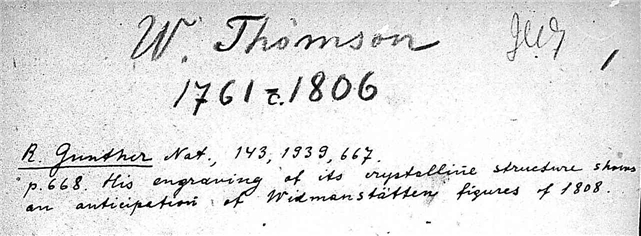 W. Thomson
1761-c.1806
R. Gunther Nat., 143, 1939, 667.
p.668. His engraving of its crystalline structure shows
an anticipation of Widmanstätten figures of 1808.